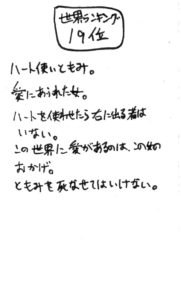 世界ランキング
19位
ハート使いともみ。
愛にあふれた女。
ハートを使わせたら右に出る者は
いない。
この世界に愛があるのは、この女の
おかげ。
ともみを死なせてはいけない。